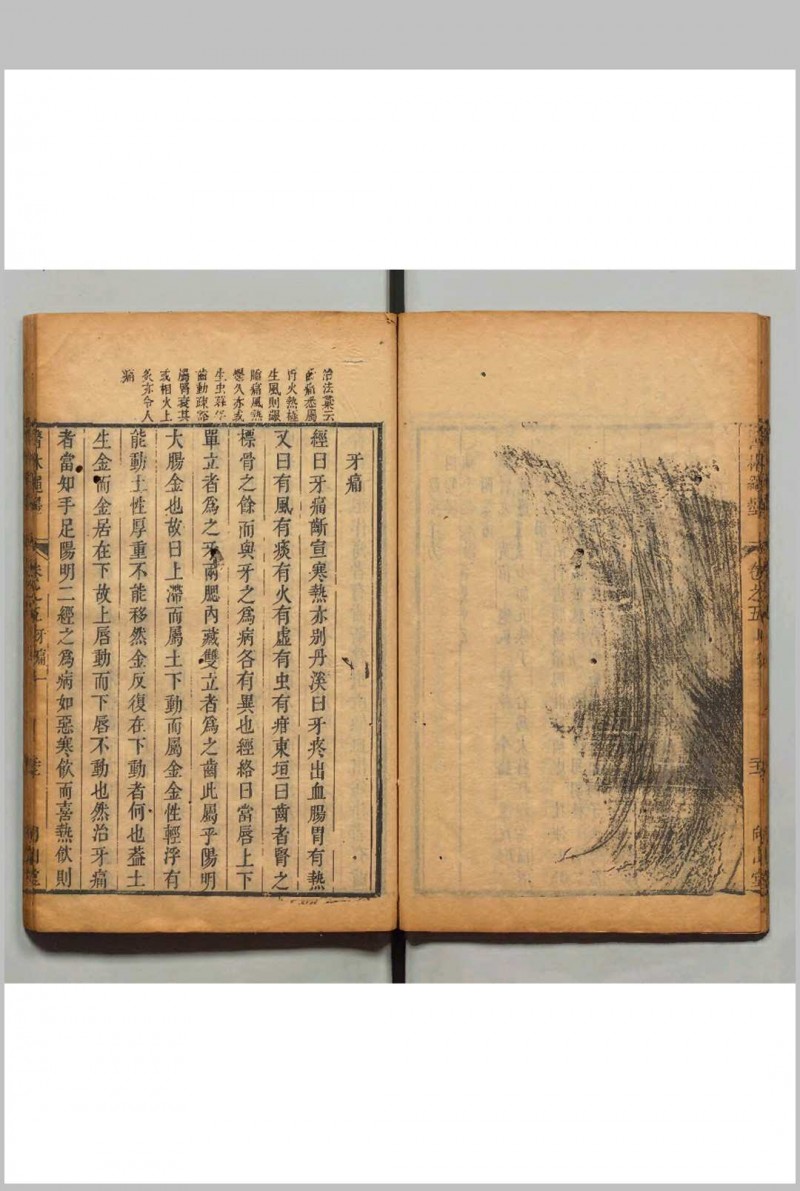 卷之五
向山堂
治法彙云
齒痛悉屬
胃火熱極
生風則齦
腫痛風熱
久亦或
生虫
齒動疎豁
屬腎衰其
或相火上
炎亦令人
痛
牙痛
經曰牙痛齗宣寒熱亦别丹溪曰牙疼出血腸胃有熱
又曰有風有痰有火有虛有虫有疳東垣曰齒者腎之
標骨之餘而與牙之爲病各有異也經絡曰當唇上下
單立者爲之牙兩腮內藏雙立者爲之齒此屬乎陽明
大腸金也故曰上滯而屬土下動而屬金金性輕浮有
能動土性厚重不能移然金反復在下動者何也蓋土
生金而金居在下故上唇動而下唇不動也然治牙痛
者當知手足陽明二經之爲病如惡寒飲而喜熱飲則
醫林繩墨
卷之五牙痛
向山堂